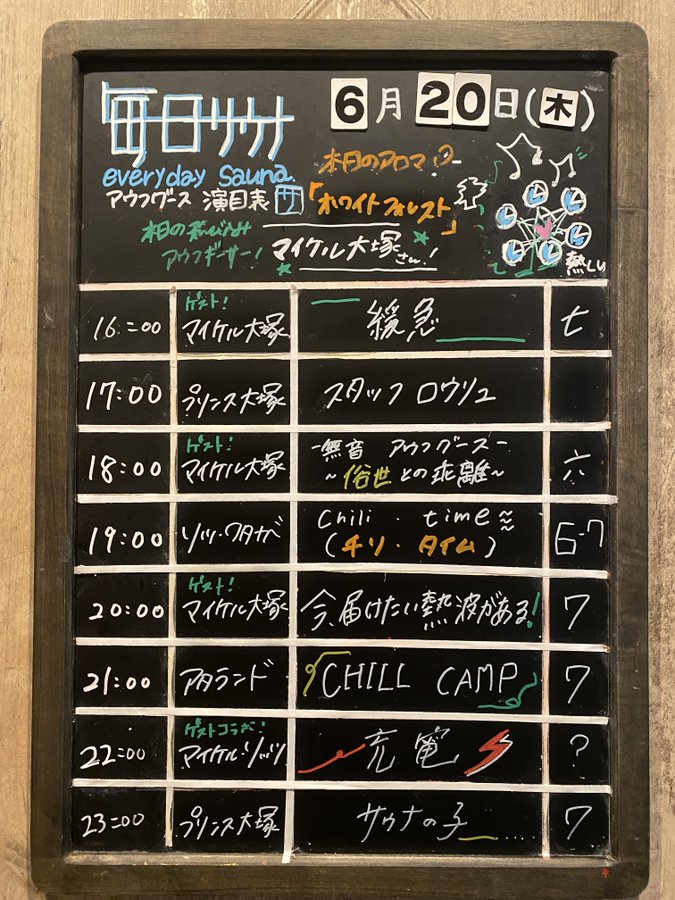 毎日サウナ
6月20日(木)
everyday sauna.
本日のアロマ!
アウフグース 演目表
「ホワイトフォレスト」
アウフギーサー!
マイケル大塚さん!
熱しい
16:00 ゲスト! マイケル大塚 緩急 七
17:00 プリンス大塚 スタッフ ロウリュ
18:00 ゲスト! マイケル大塚 -無音 アウフグース- ~俗世との乖離~ 六
19:00 ソッツ・ワタガ Chili . time (チリ・タイム) 6-7
20:00 ゲスト! マイケル大塚 今、届けたい熱波がある! 7
21:00 アタランド CHILL CAMP 7
22:00 ゲストコラボ! マイケル・ソッツ 充電 ?
23:00 プリンス大塚 サウナの子 7